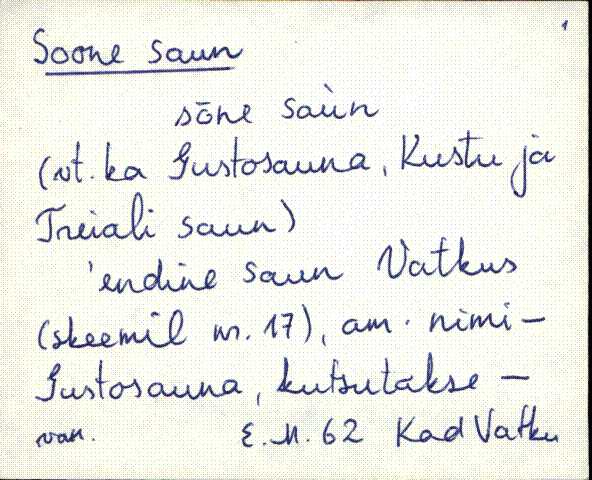 1
Soone saun
sōne saùn
(vt. ka Gustosauna, Kustu ja
Treiali saun)
'endine saun Vatkus
(skeemil nr. 17), am. nimi –
Gustosauna, kutsutakse –
van. E.N. 62 Kad Vatku